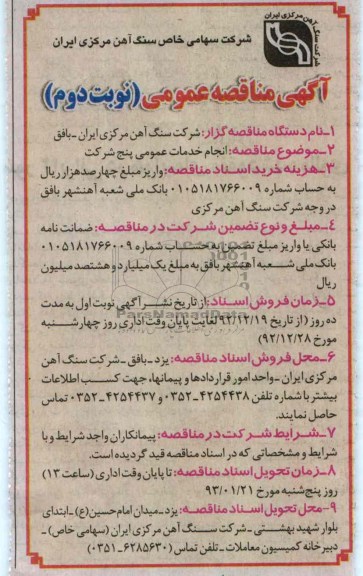 شرکت سنگ آهن مرکزی ایران
شرکت سهامی خاص سنگ آهن مرکزی ایران
آگهی مناقصه عمومی (نوبت دوم)
۱ـ نام دستگاه مناقصه گزار: شرکت سنگ آهن مرکزی ایران ـ بافق
۲ـ موضوع مناقصه: انجام خدمات عمومی پنج شرکت
۳ـ هزینه خرید اسناد مناقصه: واریز مبلغ چهارصدهزار ریال
به حساب شماره ۰۱۰۵۱۸۱۷۶۶۰۰۹ بانک ملی شعبه آهنشهر بافق
در وجه شرکت سنگ آهن مرکزی
۴ـ مبلغ و نوع تضمین شرکت در مناقصه: ضمانت نامه
بانکی یا واریز مبلغ تضمین به حساب شماره ۰۱۰۵۱۸۱۷۶۶۰۰۹
بانک ملی شعبه آهنشهر بافق به مبلغ یک میلیارد و هشتصد میلیون
ریال
۵ـ زمان فروش اسناد: از تاریخ نشر آگهی نوبت اول به مدت
ده روز (از تاریخ ۹۲/۱۲/۱۹ لغایت پایان وقت اداری روز چهارشنبه
مورخ ۹۲/۱۲/۲۸)
۶ـ محل فروش اسناد مناقصه: یزد ـ بافق ـ شرکت سنگ آهن
مرکزی ایران ـ واحد امور قراردادها و پیمانها، جهت کسب اطلاعات
بیشتر با شماره تلفن ۴۲۵۴۴۳۸ ـ ۰۳۵۲ و ۴۲۵۴۴۳۷ ـ ۰۳۵۲ تماس
حاصل نمایند.
۷ـ شرایط شرکت در مناقصه: پیمانکاران واجد شرایط و با
شرایط و مشخصاتی که در اسناد مناقصه قید گردیده است.
۸ـ زمان تحویل اسناد مناقصه: تا پایان وقت اداری (ساعت ۱۳)
روز پنج‌شنبه مورخ ۹۳/۰۱/۲۱
۹ـ محل تحویل اسناد مناقصه: یزد ـ میدان امام حسین(ع) ـ ابتدای
بلوار شهید بهشتی ـ شرکت سنگ آهن مرکزی ایران (سهامی خاص) ـ
دبیرخانه کمیسیون معاملات ـ تلفن تماس (۶۲۸۵۶۳۰ ـ ۰۳۵۱)
ParsNamadData